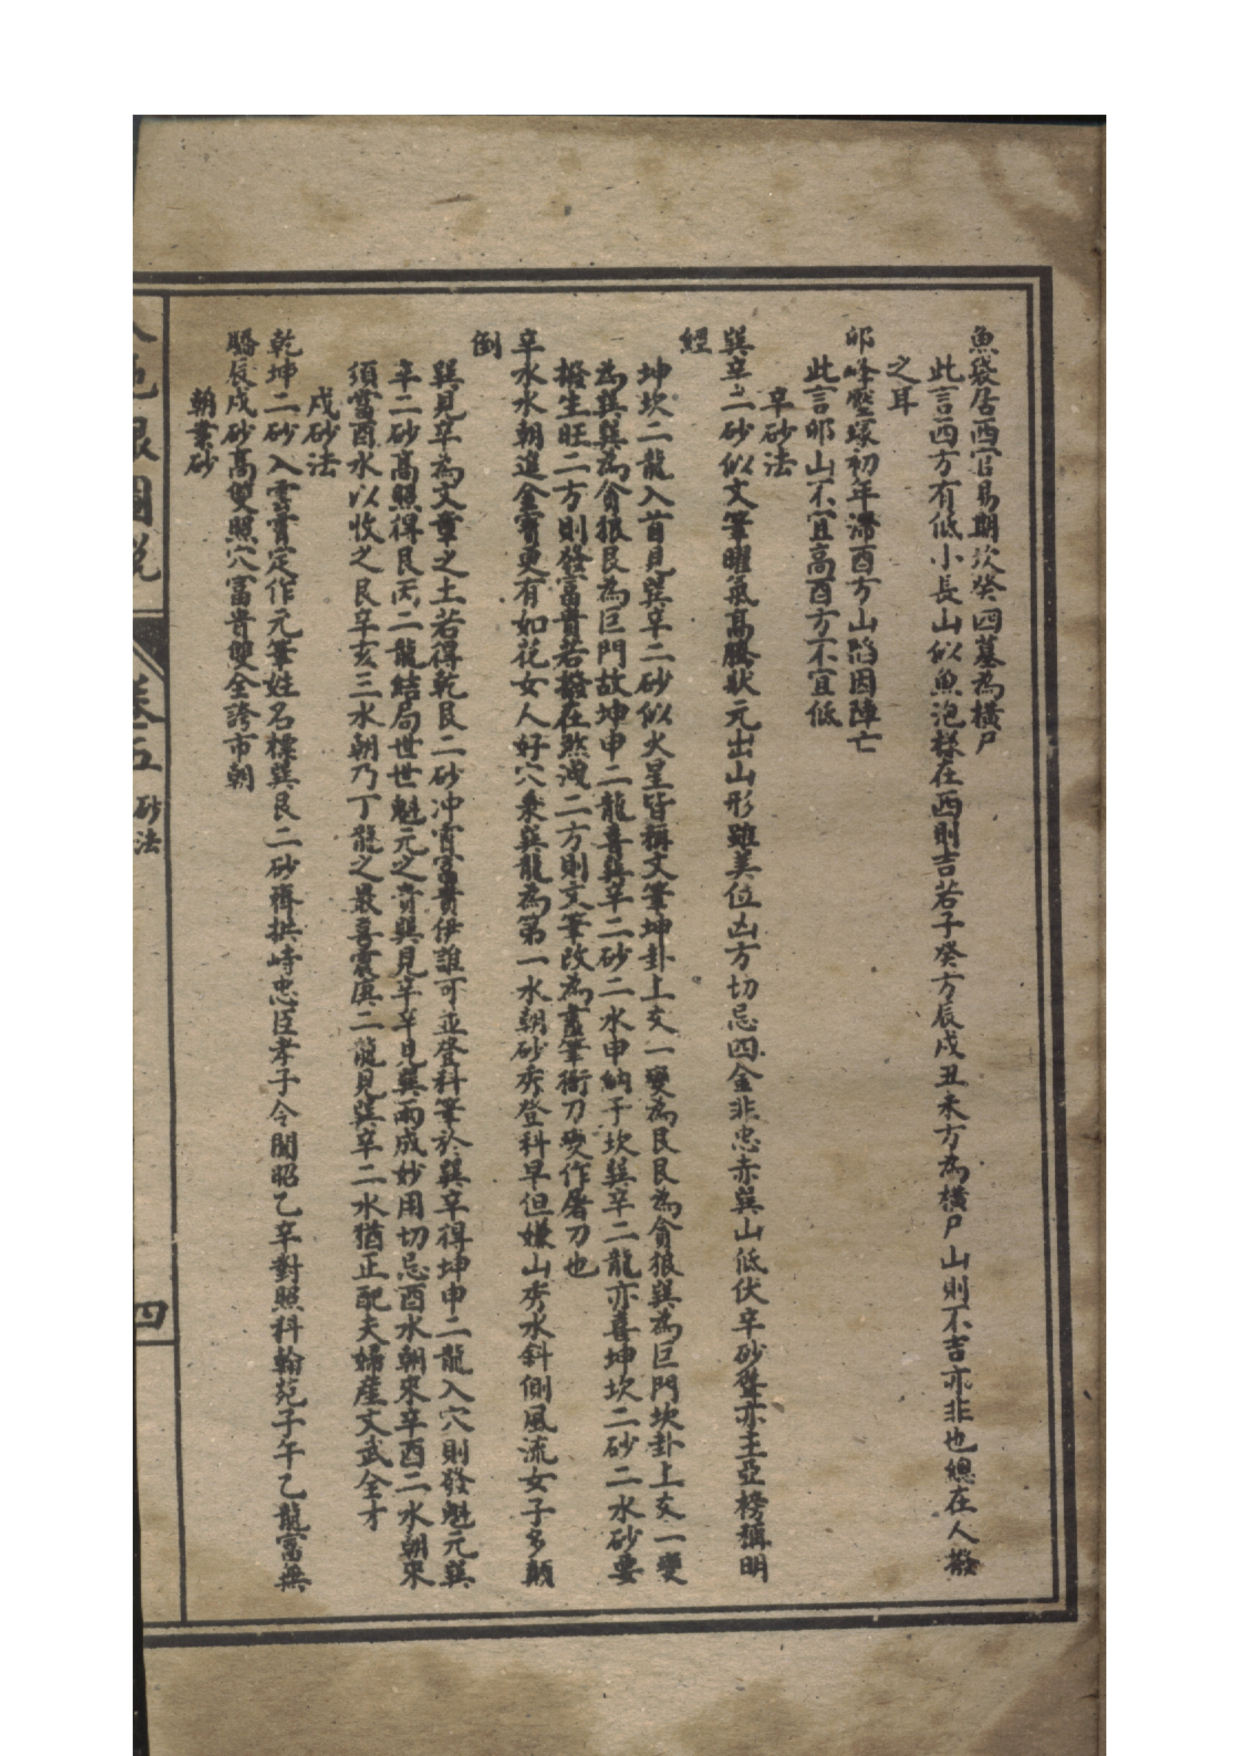 魚袋居西官易期坎癸四墓為橫尸
此言西方有低小長山似魚泡樣在西則吉若子癸方辰戌丑未方為橫尸山則不吉亦非也總在人撥
之耳
卯峰壓塚初年滯酉方山陷因陣亡
此言卯山不宜高酉方不宜低
辛砂法
巽辛二砂似文筆曜氣高騰狀元出山形雖美位凶方切忌四金非忠赤巽山低伏辛砂聳亦主亞榜稱明
經
坤坎二龍入首見巽辛二砂似火星皆稱文筆坤卦上爻一變為艮艮為貪狼巽為巨門坎卦上爻一變
為巽巽為貪狼艮為巨門故坤申二龍喜巽辛二砂二水申納于坎巽辛二龍亦喜坤坎二砂二水砂要
撥生旺二方則發富貴若撥在煞洩二方則文筆改為畫筆衙刀變作屠刀也
辛水水朝進金寶更有如花女人好穴乘巽龍為第一水朝砂秀登科早但嫌山秀水斜側風流女子多顛
倒
巽見辛為文章之士若得乾艮二砂冲霄富貴伊誰可並登科筆於巽辛得坤申二龍入穴則發魁元巽
辛二砂高照得艮丙二龍結局世世魁元之貴巽見辛辛見巽兩成妙用切忌酉水朝來辛酉二水朝來
須當酉水以收之艮辛亥三水朝乃丁龍之最喜震庚二龍見巽辛二水猶正配夫婦產文武全才
戌砂法
乾坤二砂入雲霄定作元筆姓名標巽艮二砂齊拱峙忠臣孝子令聞昭乙辛對照科翰苑子午乙龍富無
驕辰戌砂高雙照穴富貴雙全誇市朝
朝業砂
卷五
砂法
四